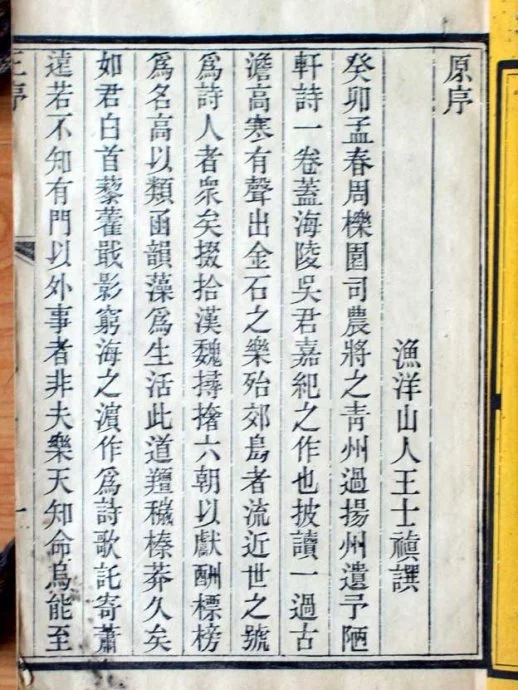 原序
漁洋山人王士禛譔
癸卯孟春周櫟園司農將之青州過揚州遺予陋
軒詩一卷蓋海陵吳君嘉紀之作也披讀一過古
澹高寒有聲出金石之樂殆郊島者流近世之號
為詩人者衆矣掇拾漢魏撏撦六朝以獻酬標榜
為名高以類函韻藻為生活此道羶穢榛莽久矣
如君白首藜藿戢影窮海之濱作為詩歌託寄蕭
遠若不知有門以外事者非夫樂天知命烏能至
王序
一